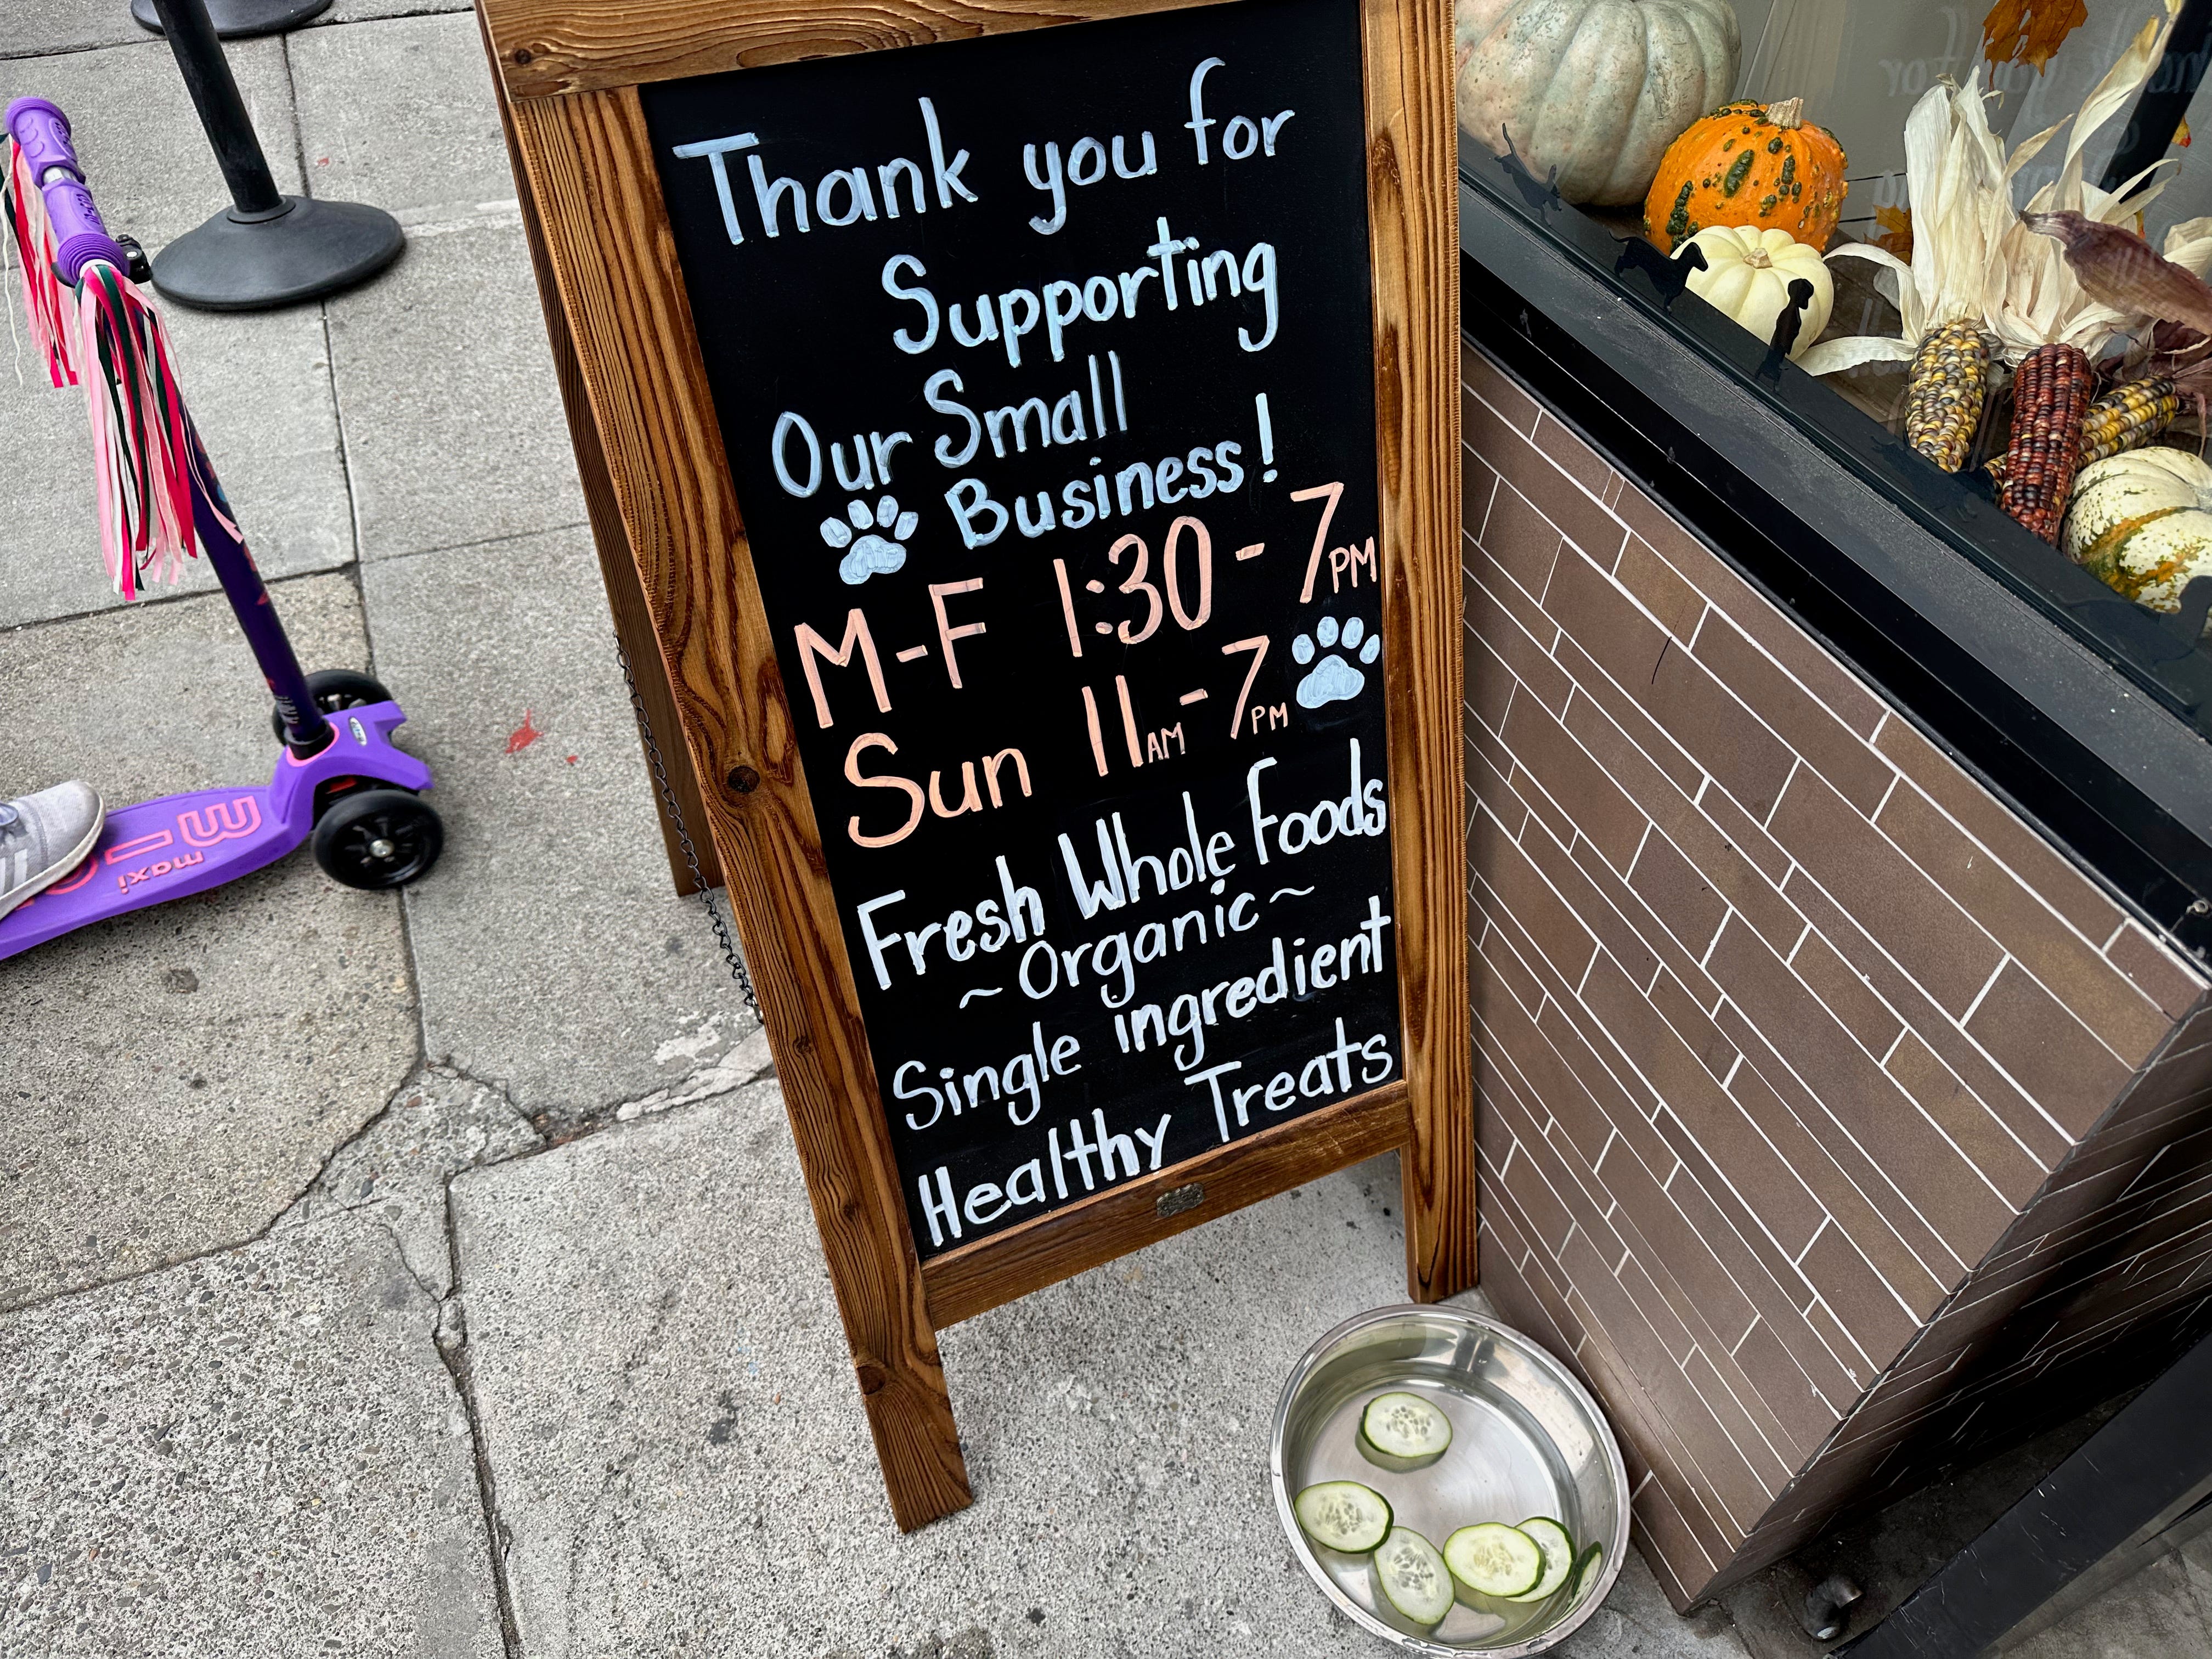 Thank you for
Supporting
Our Small
Business!
M-F 1:30 - 7PM
Sun 11AM - 7PM
Fresh Whole Foods
~ Organic ~
Single ingredient
Healthy Treats
maxi